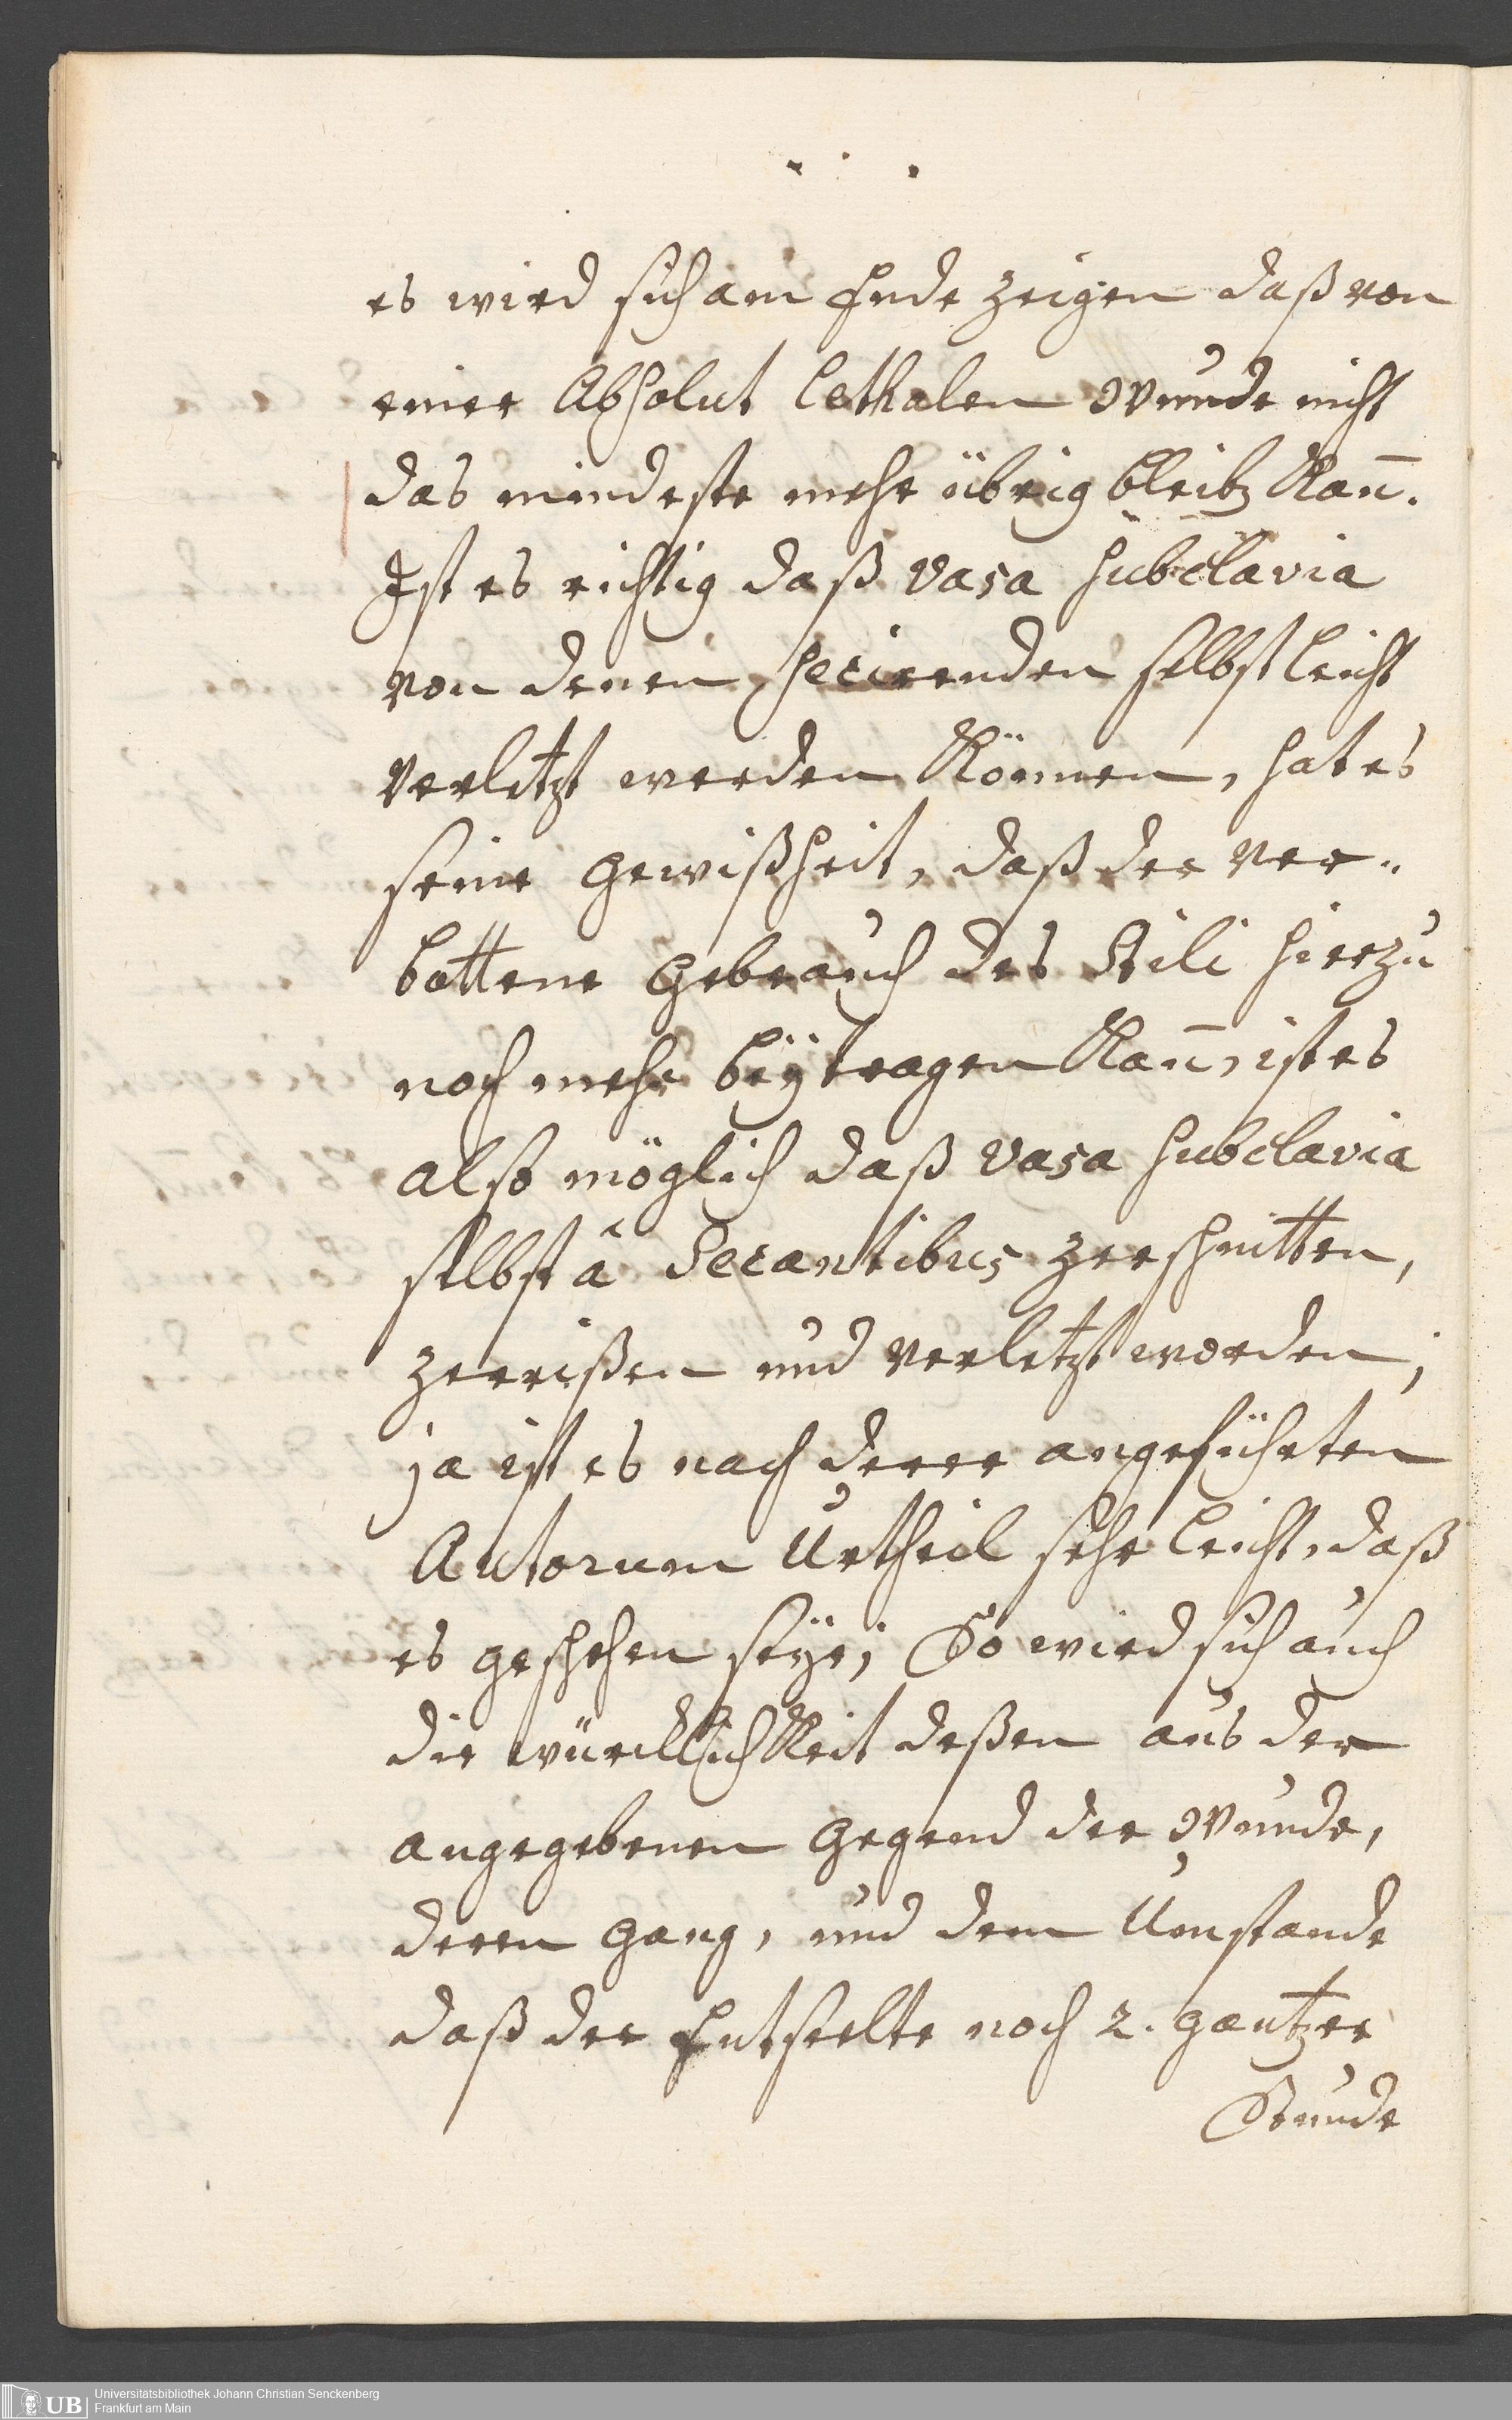 es wird sich am Ende zeigen daß von
einer Absolut lethalen Wunde nicht
das mindeste mehr übrig bleibẽ kan̄.
Ist es richtig daß vasa subclavia
von denen secirenden selbst leicht
verletzt werden können, hat es
seine Gewißheit, daß der ver„
bottene Gebrauch des Stili hierzu
noch mehr beÿtragen kan̄, ist es
also möglich daß vasa subclavia
selbst â Secantibus zerschnitten,
zerrißen und verletzt worden;
ja ist es nach derer angeführten
Autorum Urtheil sehr leicht, daß
es geschehen seÿe; So wird sich auch
die würcklichkeit deßen aus der
angegebenen Gegend der Wunde,
deren Gang, und dem Umstande
daß der Entseelte noch 2. gantzer
Stunde
UB
Universitätsbibliothek Johann Christian Senckenberg
Frankfurt am Main